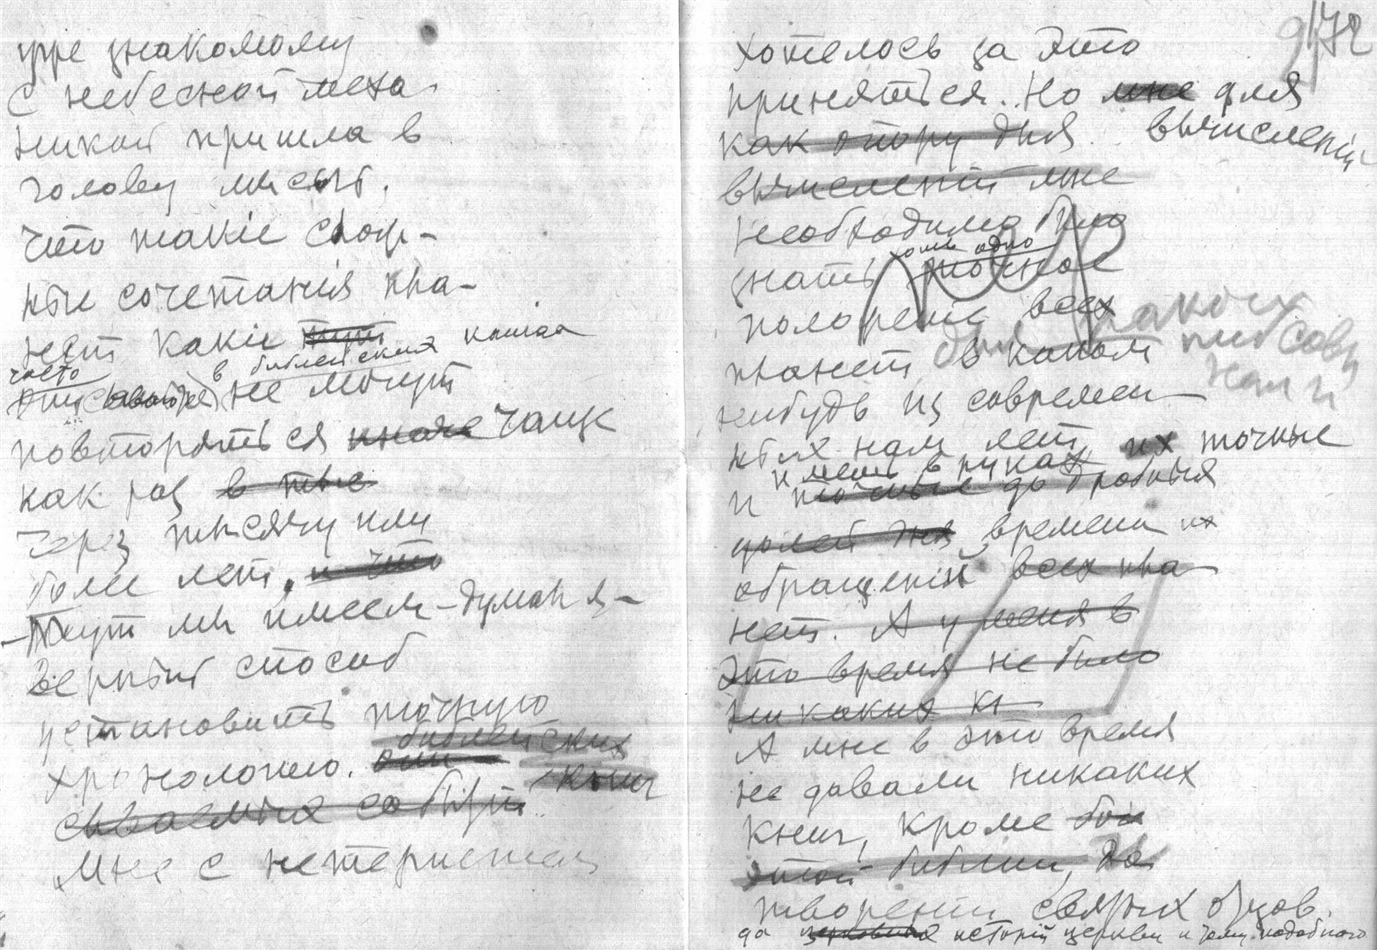 уже знакомому
с небесной меха-
никой пришла в
голову мысль.
Что такие слож-
ные сочетания пла-
нет какие
часто в библейских книгах
не могут
повторяться иначе чаще
как раз в
через тысячу или
более лет, и что
Тут мы имеем – думал я –
верный способ
установить точную
библейских
хронологию. книг
событий
Мне с нетерпением
9/72
хотелось за это
приняться. Но мне для
как опору для вычислений
вычислений мне
необходимо было
хоть одно
знать точное
положение всех
планет в каком
нибудь из современ-
ных нам лет, их точные
иметь в руках
и до дробных
долей дня времена их
обращений всех пла-
нет. А у меня в
это время не было
никаких кн
А мне в это время
не давали никаких
книг, кроме
этой библии, да
творений святых отцов
да истории церкви и тому подобного